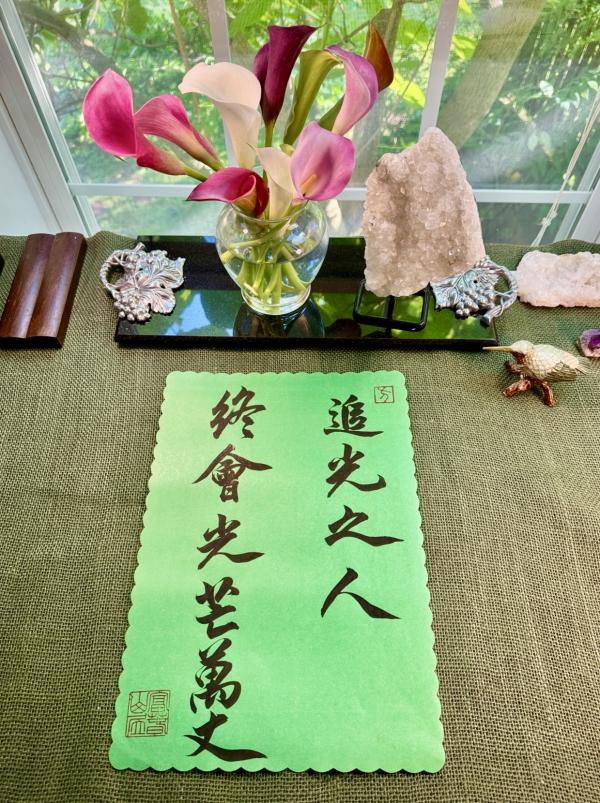 追光之人
終會光芒萬丈